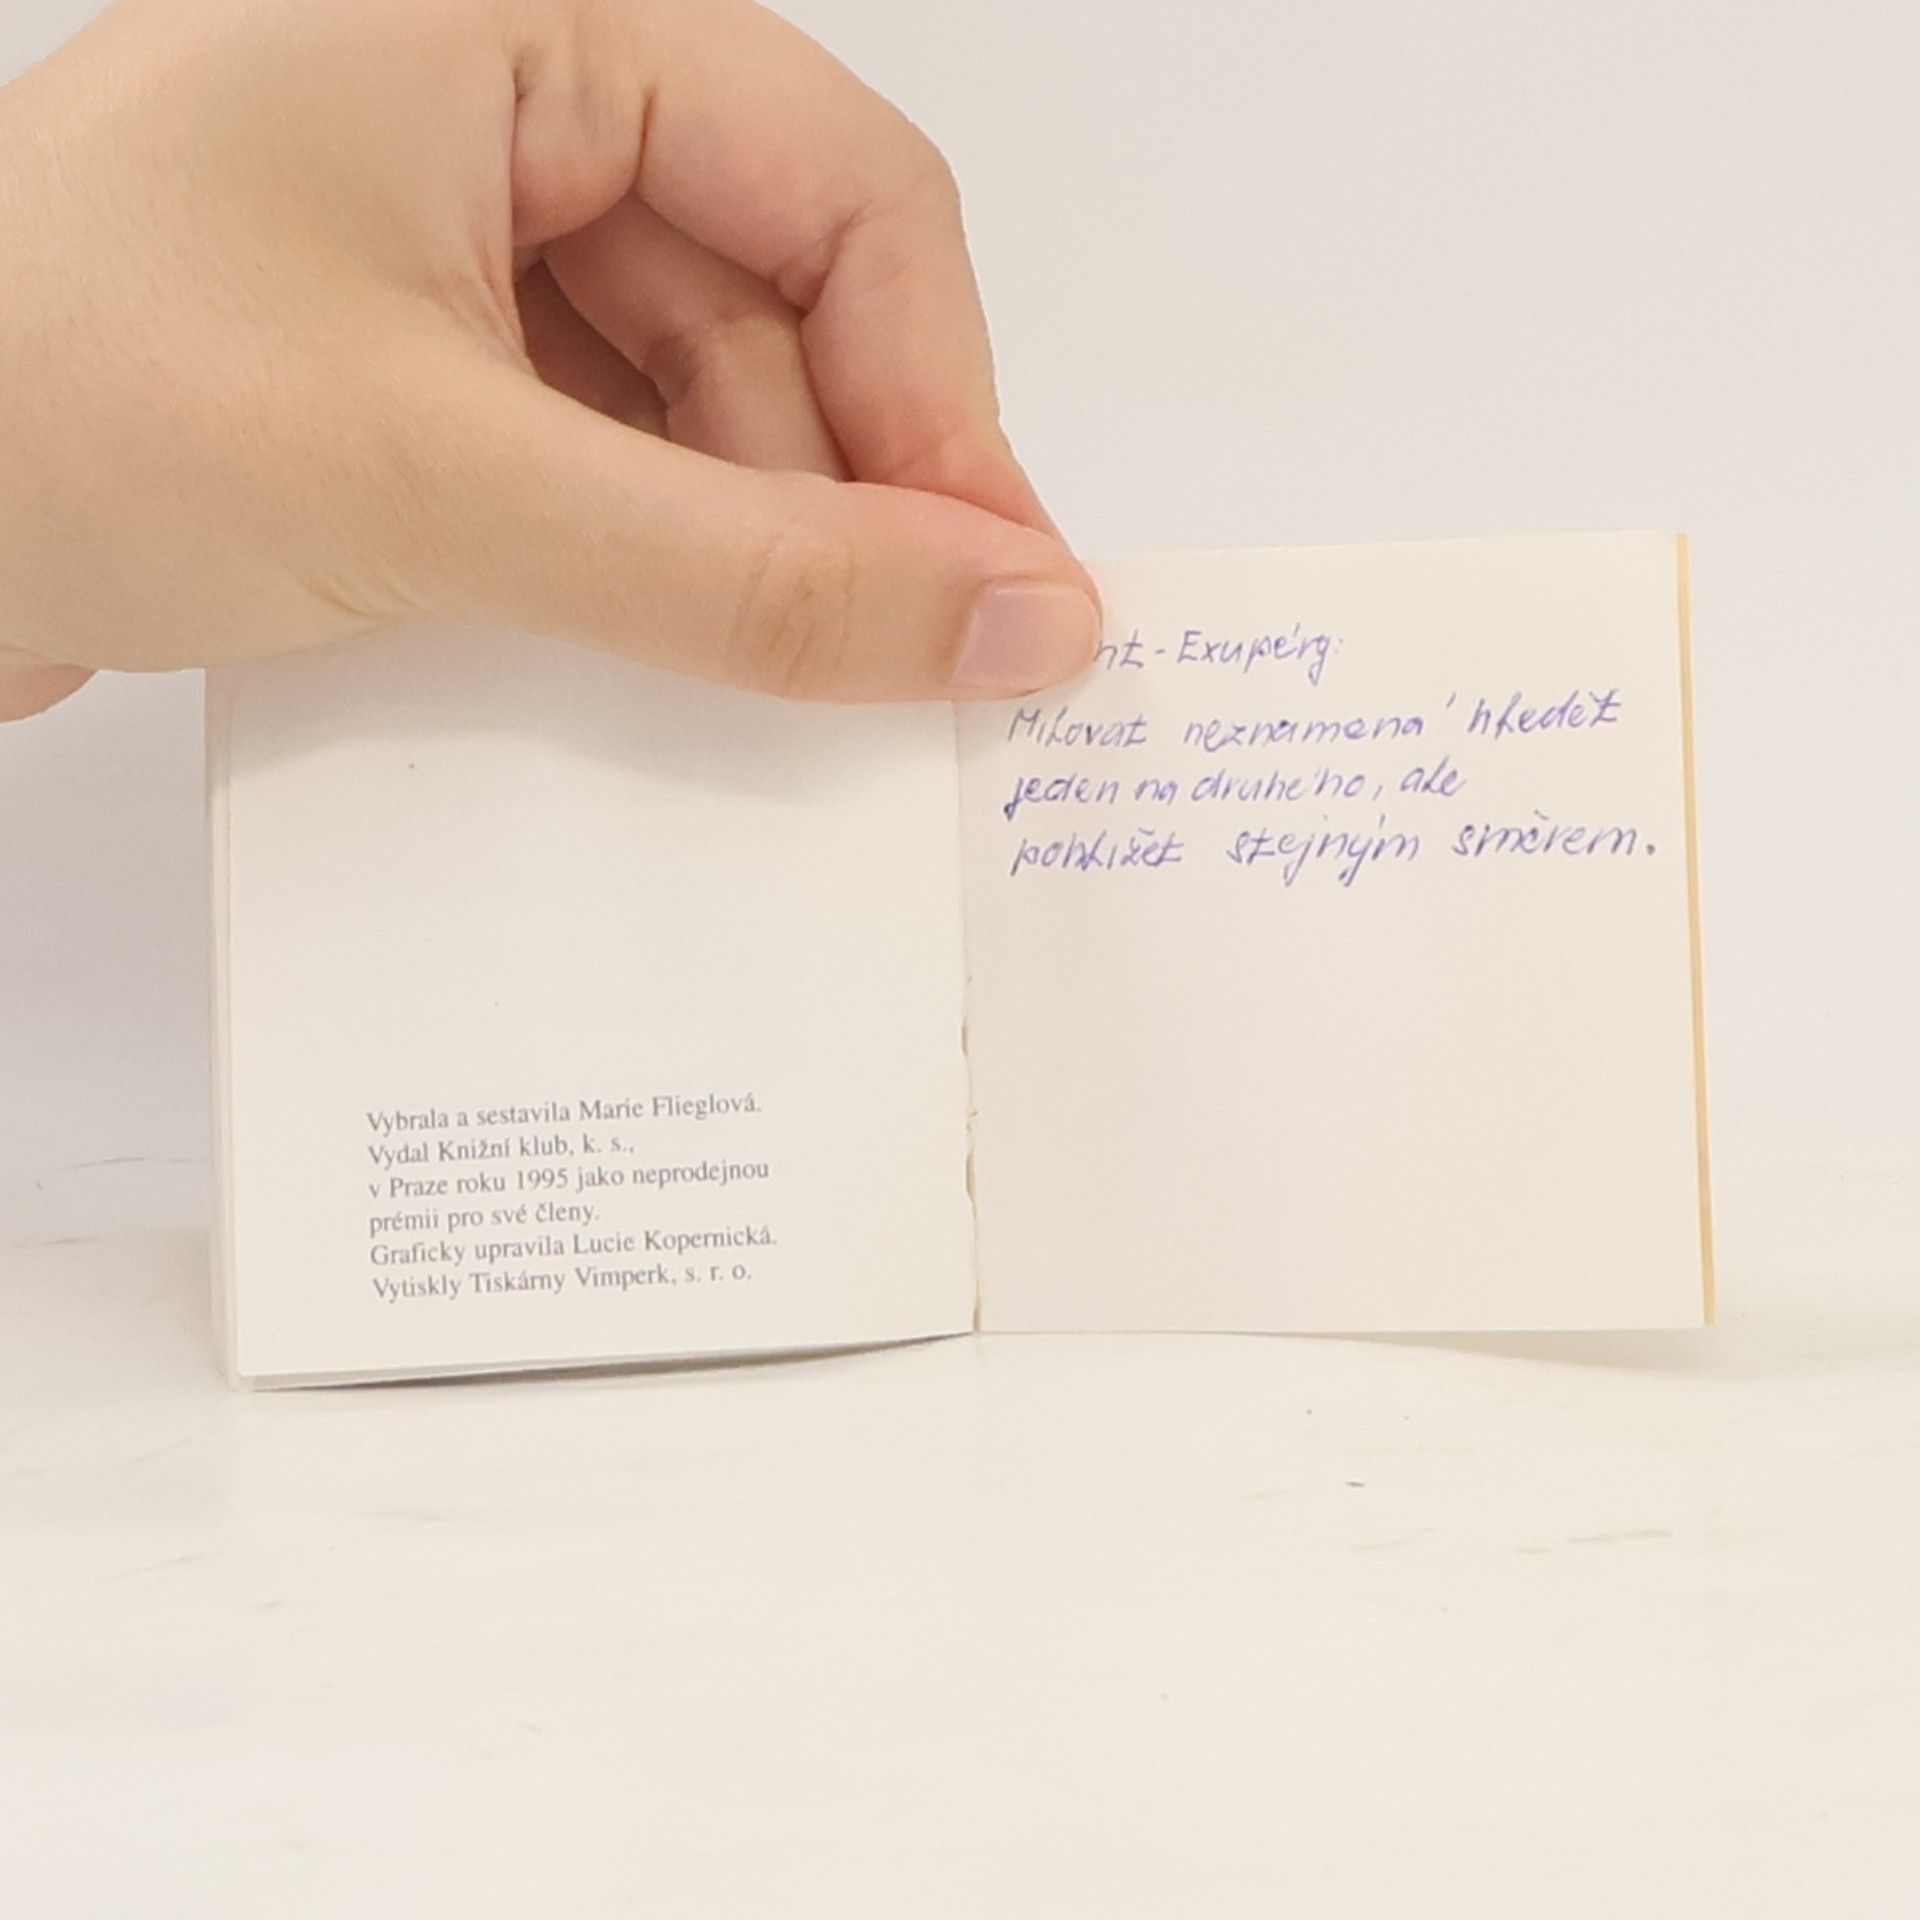 Vybrala a sestavila Marie Flieglová.
Vydal Knižní klub, k. s.,
v Praze roku 1995 jako neprodejnou
prémii pro své členy.
Graficky upravila Lucie Kopernická.
Vytiskly Tiskárny Vimperk, s. r. o.
nt-Exupéry:
Milovat neznamená hledět
jeden na druhého, ale
pohlížet stejným směrem.